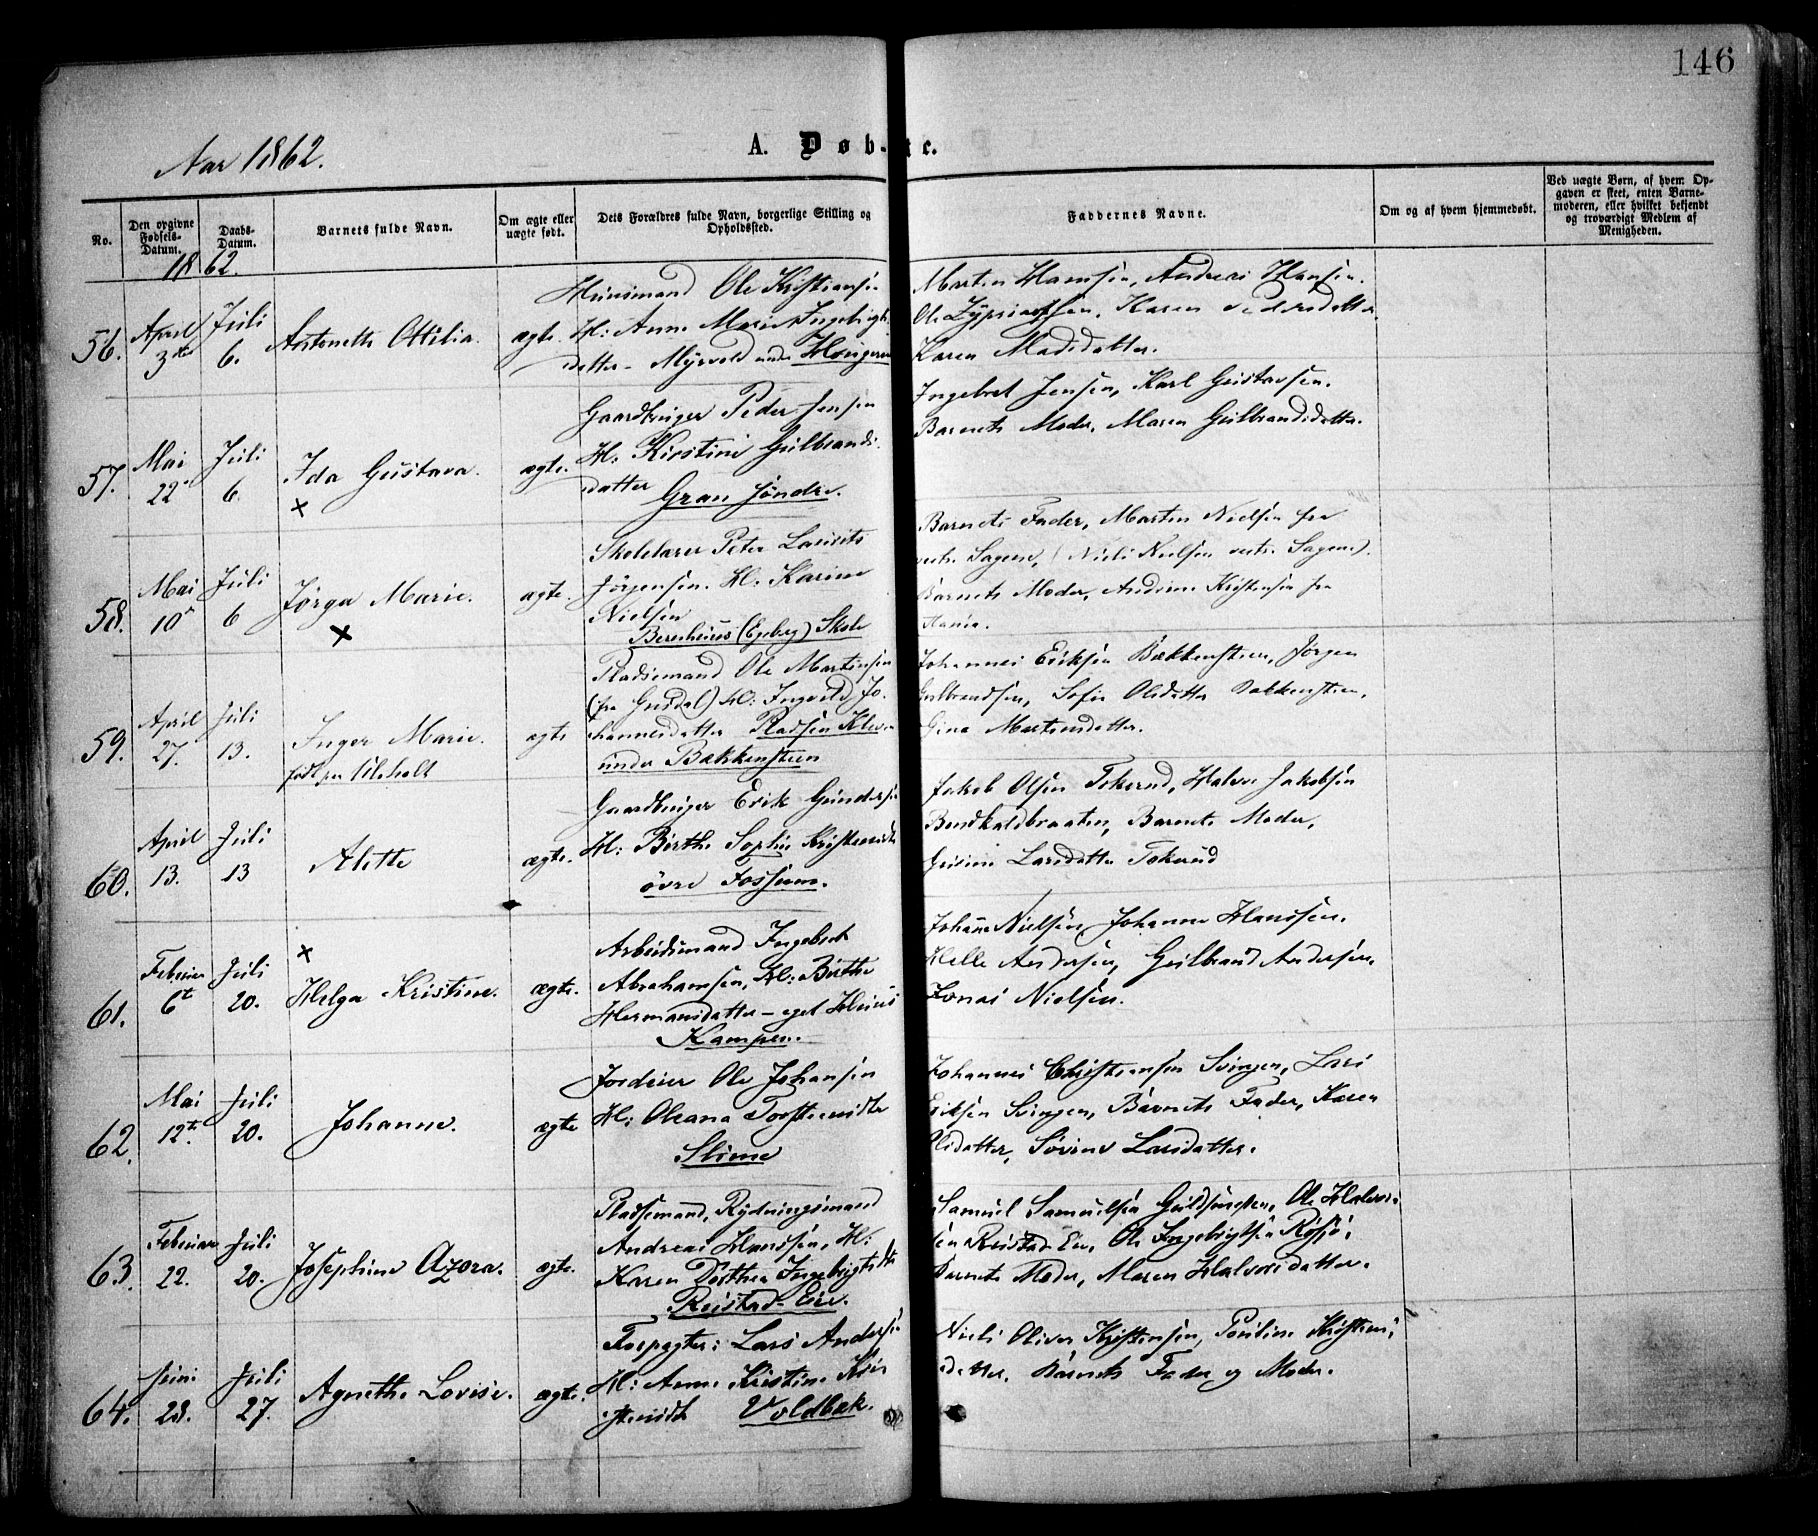 146
Aar 1862.
A. Døb- te.
No.
Den opgivne Fødsels-Datum.
Daabs-Datum.
Barnets fulde Navn.
Om ægte eller uægte født.
Dets Forældres fulde Navn, borgerlige Stilling og Opholdssted.
Faddernes Navne.
Om og af hvem hjemmedøbt.
Ved uægte Børn, af hvem Op-
gaven er skeet, enten Barne-
moderen, eller hvilket bekjendt
og troværdigt Medlem af
Menigheden.
1862.
56. April 3die Juli 6. Antonette Ottilia. ægte.
Huusmand Ole Kristiansen
H: Anne Marie Ingebrigts
datter - Myrvold under
Martin Hansen, Andreas Hansen.
Ole Karen Pedersdatter.
Karen Madsdatter.
57. Mai 22 Juli 6. Ida Gustava. ægte.
×
Gaardbruger Peder Jensen
H: Kirstine Gulbrands
datter
Gran søndre.
Ingebret Jensen, Karl Gustavsen.
Barnets Moder, Maren Gulbrandsdatter.
58. Mai 10 Juli 6 Jørga Marie. ægte.
×
Skolelærer Peter Laurits
Jørgensen. H: Karine
Nielsen
(Egeberg) Skole
Barnets Fader, Marten Nielsen fra
vestre Sagene, (Niels Nielsen vestre Sagene).
Barnets Moder, Andrine Kristensen fra
59. April 27. Juli 13. Inger Marie. ægte
født paa
Pladsemand Ole Martinsen
(fra ) H: Ingvild Jo-
hannesdatter Pladsen
under Bakkensteen
Johannes Eriksen Bakkensteen, Jørgen
Gulbrandsen, Sofie Olsdatter Bakkensteen,
Gina Martinsdatter.
60. April 13. Juli 13 Alette ægte.
Gaardbruger Erik Gundersen
H: Birthe Sophie Kristensdtr
øvre Fossum.
Jakob Olsen Tokerud, Halvor Jakobsen
Bondkaldbraaten, Barnets Moder,
Larsdatter Tokerud
×
61. Februar 6t Juli 20. Helga Kristine. ægte.
Arbeidsmand Ingebret
Abrahamsen, H: Birthe
Hermansdatter - eget Huus
Kampen.
Johan Nielsen Johanne Hanssen.
Helle Andersen, Gulbrand Andersen,
Jonas Nielsen.
62. Mai 12t. Juli 20. Johanne. ægte
Jordeier Ole Johansen
H: Oleana Torstensdtr
Slime
Johannes Christiansen Svingen, Lars
Eriksen Svingen, Barnets Fader, Karen
Olsdatter, Sørine Larsdatter.
63. Februar 22. Juli 20. Josephine Azora. ægte.
Pladsemand, Rydningsmand
Andreas Hanssen, H:
Karen Dorthea Ingebrigtsdtr
Reistad-Eie.
Samuel Samuelsen Ole Halvor-
sen Reistad-Eie, Ole Ingebrigtsen Røsjø,
Barnets Moder, Maren Halvorsdatter.
64. Juni 28. Juli 27. Agnethe Lovise. ægte.
Forpagter: Lars Andersen
H: Anne Kristine Kri-
stensdtr Voldbæk.
Niels Oliver Kristensen, Pauline Kristens-
datter. Barnets Fader og Moder.